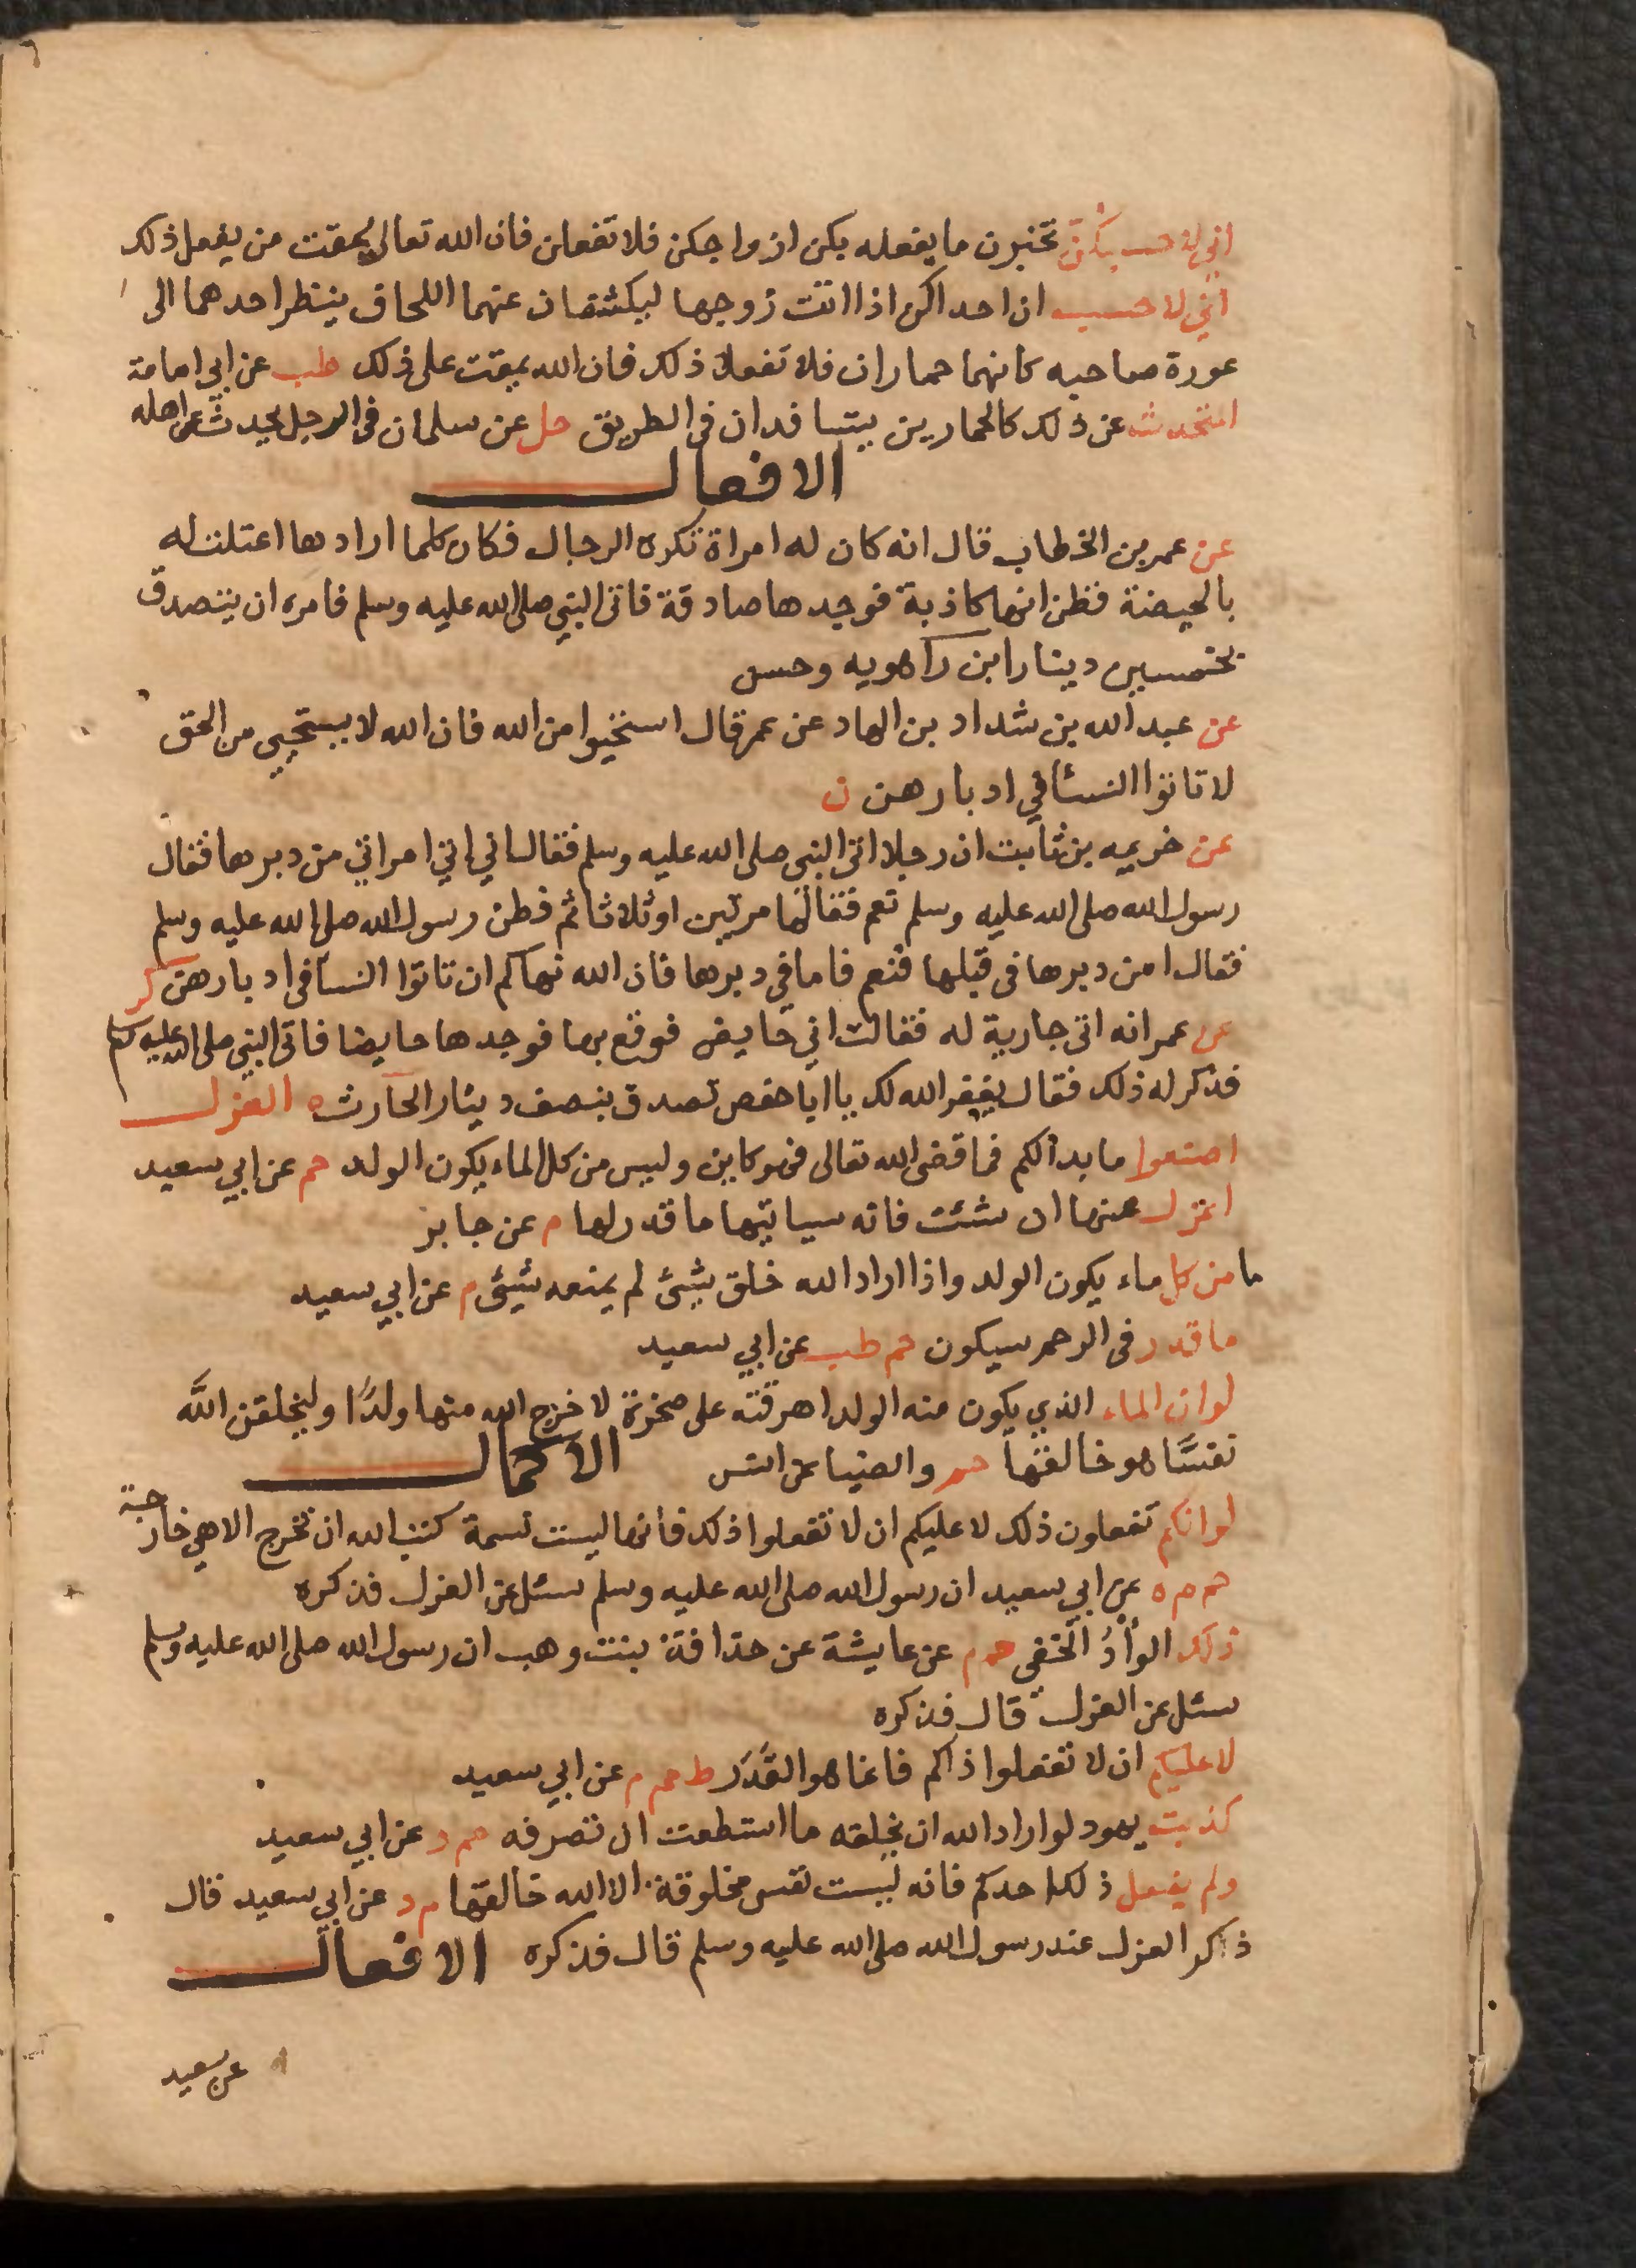 اني لاحسبكن تخبرن ما يفعله بكن ازواجكن فلا تفعلن فان الله تعالى يمقت من يفعل ذلك
اني لا حسب ان احداكن اذا اتت زوجها ليكشفان عنهما اللحاف ينظر احدهما الى
عورة صاحبه كانهما حماران فلا تفعلا ذلك فان الله يمقت على ذلك طب عن ابي امامة
المتحدث عن ذلك كالحمارين يتسافدان في الطريق حل عن سلمان في الرجل يحدث عن اهله
الافعال
عن عمر بن الخطاب قال انه كان له امراة تكره الرجال فكان كلما ارادها اعتلت له
بالحيضة فظن انها كاذبة فوجدها صادقة فاتى النبي صلى الله عليه وسلم فامره ان يتصدق
بخمسين دينارا ابن راهويه وحسن
عن عبد الله بن شداد بن الهاد عن عمر قال استحيوا من الله فان الله لا يستحيي من الحق
لا تاتوا النسآ في ادبارهن ن
عن خزيمه بن ثابت ان رجلا اتى النبي صلى الله عليه وسلم فقال اني اتي امراتي من دبرها فقال
رسول الله صلى الله عليه وسلم نعم فقالها مرتين او ثلاثا ثم فطن رسول الله صلى الله عليه وسلم
فقال امن دبرها في قبلها فنعم فاما في دبرها فان الله نهاكم ان تاتوا النسآ في ادبارهن كر
عن عمر انه اتى جارية له فقالت اني حايض فوقع بها فوجدها حايضا فاتى النبي صلى الله عليه وسلم
فذكر له ذلك فقال يغفر الله لك يا ابا حفص تصدق بنصف دينار الحارث ه العزل
اصنعوا ما بدا لكم فما قضى الله تعالى فهو كاين وليس من كل الماء يكون الولد حم عن ابي سعيد
اعزل عنها ان شئت فانه سياتيها ما قدر لها م عن جابر
ما من كل ماء يكون الولد واذا اراد الله خلق شئ لم يمنعه شيئ م عن ابي سعيد
ما قدر في الرحم سيكون حم طب عن ابي سعيد
لو ان الماء الذي يكون منه الولد اهرقته على صخرة لاخرج الله منها ولدًا وليخلقن الله
نفسًا هو خالقها حم والضيا عن انس الاكمال
لو انكم تفعلون ذلك لا عليكم ان لا تفعلوا ذلك فانها ليست نسمة كتب الله ان تخرج الا هي خارجة
حم م ه عن ابي سعيد ان رسول الله صلى الله عليه وسلم سئل عن العزل فذكره
ذلك الوأدُ الخفي حم م عن عايشة عن حذافة بنت وهب ان رسول الله صلى الله عليه وسلم
سئل عن العزل قال فذكره
لا عليكم ان لا تفعلوا ذاكم فانما هو القَدَر ط حم م عن ابي سعيد
كذبت يهود لو اراد الله ان يخلقه ما استطعت ان تصرفه حم د عن ابي سعيد
ولم يفعل ذلك احدكم فانه ليست نفس مخلوقة الا الله خالقها م د عن ابي سعيد قال
ذكر العزل عند رسول الله صلى الله عليه وسلم قال فذكره الافعال
عن سعيد